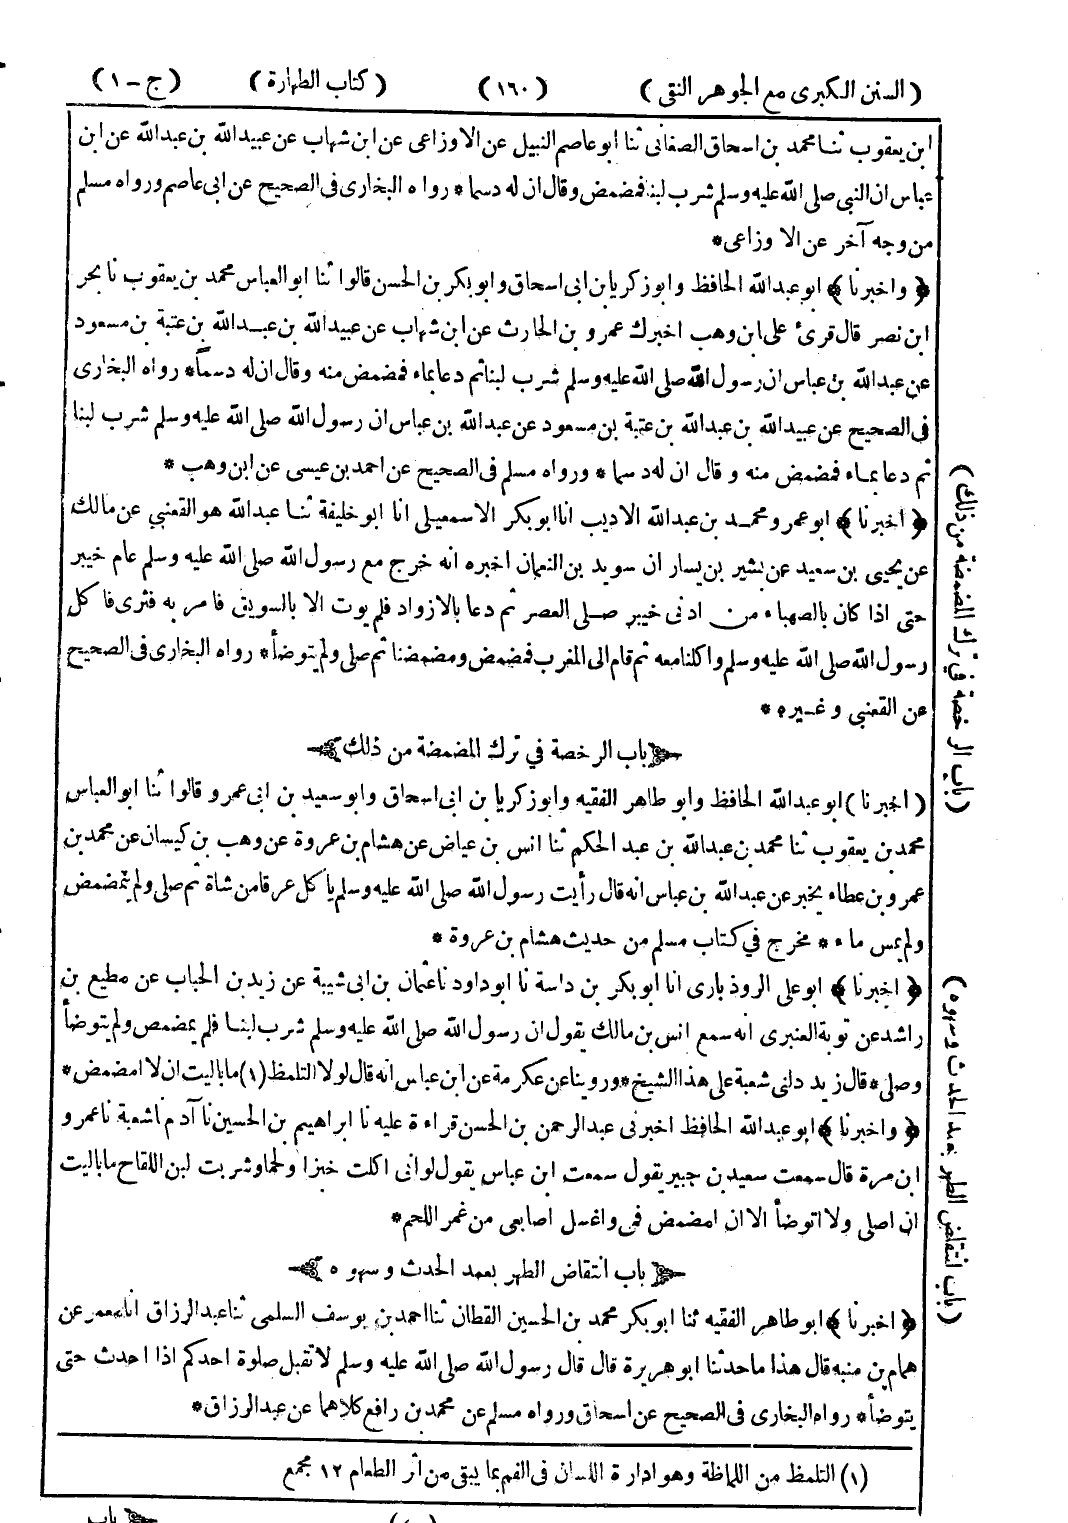 ( السنن الكبرى مع الجوهر النقى ) (١٦٠) ( كتاب الطهارة ) ( ج - ١ )
ابن يعقوب ثنا محمد بن اسحاق الصغانى ثنا ابو عاصم النبيل عن الاوزاعى عن ابن شهاب عن عبيد الله بن عبد الله عن ابن
عباس ان النبى صلى الله عليه وسلم شرب لبنا فمضمض وقال ان له دسما * رواه البخارى فى الصحيح عن ابى عاصم ورواه مسلم
من وجه آخر عن الاوزاعى *
﴿ واخبرنا ﴾ ابو عبد الله الحافظ وابو زكريا بن ابى اسحاق وابو بكر بن الحسن قالوا ثنا ابو العباس محمد بن يعقوب نا بحر
ابن نصر قال قرئ على ابن وهب اخبرك عمرو بن الحارث عن ابن شهاب عن عبيد الله بن عبد الله بن عتبة بن مسعود
عن عبد الله بن عباس ان رسول الله صلى الله عليه وسلم شرب لبنا ثم دعا بماء فمضمض منه وقال ان له دسماً * رواه البخارى
فى الصحيح عن عبيد الله بن عبد الله بن عتبة بن مسعود عن عبد الله بن عباس ان رسول الله صلى الله عليه وسلم شرب لبنا
ثم دعا بماء فمضمض منه و قال ان له دسما * ورواه مسلم فى الصحيح عن احمد بن عيسى عن ابن وهب *
﴿ اخبرنا ﴾ ابو عمرو محمد بن عبد الله الاديب انا ابو بكر الاسمعيلى انا ابو خليفة ثنا عبد الله هو القعنبي عن مالك
عن يحيى بن سعيد عن بشير بن يسار ان سويد بن النعمان اخبره انه خرج مع رسول الله صلى الله عليه وسلم عام خيبر
حتى اذا كان بالصهباء من ادنى خيبر صلى العصر ثم دعا بالازواد فلم يوت الا بالسويق فامر به فثرى فاكل
رسول الله صلى الله عليه وسلم واكلنا معه ثم قام الى المغرب فمضمض ومضمضنا ثم صلى ولم يتوضأ * رواه البخارى فى الصحيح
عن القعنبي وغيره *
باب الرخصة في ترك المضمضة من ذلك
( اخبرنا ) ابو عبد الله الحافظ وابو طاهر الفقيه وابو زكريا بن ابى اسحاق وابو سعيد بن ابى عمرو قالوا ثنا ابو العباس
محمد بن يعقوب ثنا محمد بن عبد الله بن عبد الحكم ثنا انس بن عياض عن هشام بن عروة عن وهب بن كيسان عن محمد بن
عمرو بن عطاء يخبر عن عبد الله بن عباس انه قال رأيت رسول الله صلى الله عليه وسلم يأكل عرقا من شاة ثم صلى ولم يتمضمض
ولم يمس ماء * * مخرج في كتاب مسلم من حديث هشام بن عروة *
﴿ اخبرنا ﴾ ابو على الروذبارى انا ابو بكر بن داسة نا ابو داود نا عثمان بن ابى شيبة عن زيد بن الحباب عن مطيع بن
راشد عن توبة العنبرى انه سمع انس بن مالك يقول ان رسول الله صلى الله عليه وسلم شرب لبنا فلم يمضمض ولم يتوضأ
وصلى * قال زيد دلنى شعبة على هذا الشيخ * وروينا عن عكرمة عن ابن عباس انه قال لولا التلمظ (١) ما باليت ان لا امضمض *
﴿ واخبرنا ﴾ ابو عبد الله الحافظ اخبرنى عبد الرحمن بن الحسن قراءة عليه نا ابراهيم بن الحسين نا آدم نا شعبة نا عمرو
ابن مرة قال سمعت سعيد بن جبير يقول سمعت ابن عباس يقول لو انى اكلت خبزا ولحما وشربت لبن اللقاح ما باليت
ان اصلى ولا اتوضأ الا ان امضمض فمى واغسل اصابعى من غمر اللحم *
باب انتقاض الطهر بعمد الحدث وسهوه
﴿ اخبرنا ﴾ ابو طاهر الفقيه ثنا ابو بكر محمد بن الحسين القطان ثنا احمد بن يوسف السلمى ثنا عبد الرزاق انا معمر عن
همام بن منبه قال هذا ما حدثنا ابو هريرة قال قال رسول الله صلى الله عليه وسلم لا تقبل صلوة احدكم اذا احدث حتى
يتوضأ * رواه البخارى فى الصحيح عن اسحاق ورواه مسلم عن محمد بن رافع كلاهما عن عبد الرزاق *
(١) التلمظ من اللماظة وهو ادارة اللسان فى الفم بما يبقى من اثر الطعام ١٢ مجمع
باب
( باب الرخصة في ترك المضمضة من ذلك )
( باب انتقاض الطهر بعمد الحدث وسهوه )